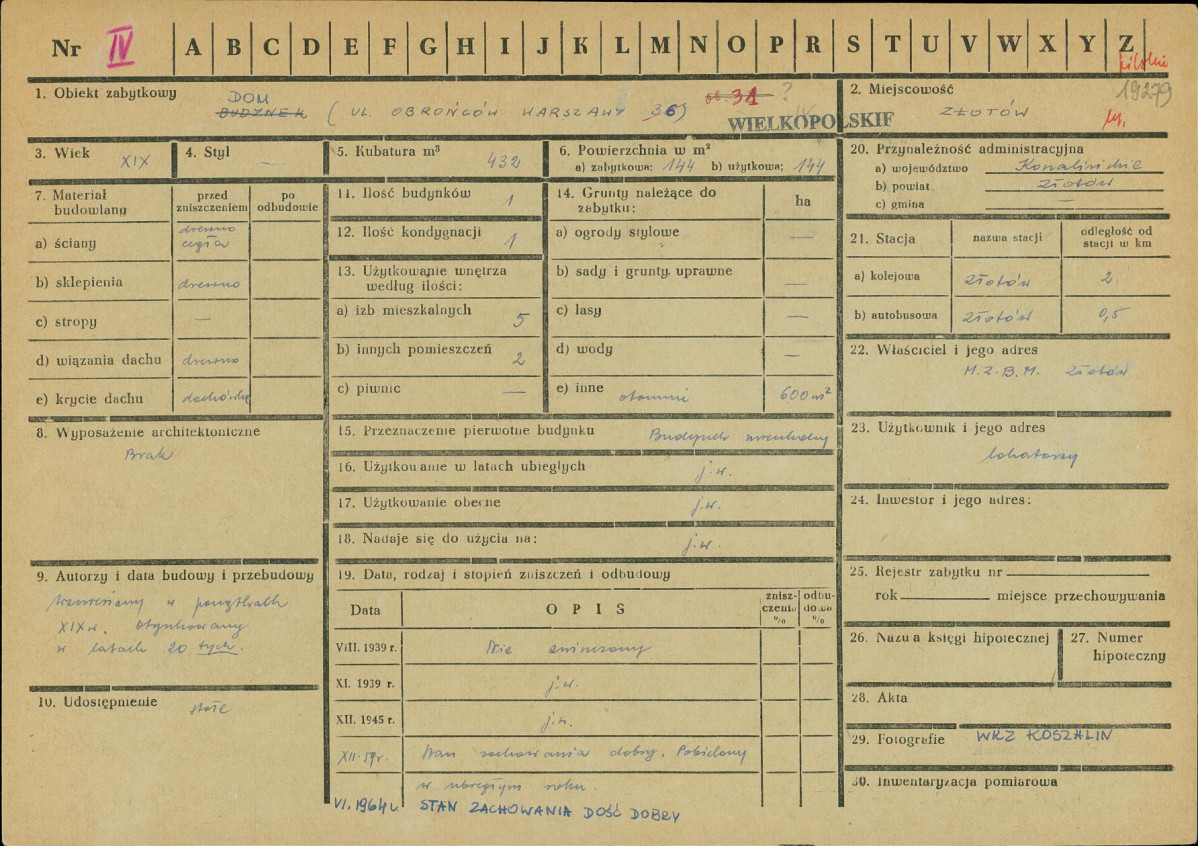 Nr IV A B C D E F G H I J K L M N O P R S T U V W X Y Z
1. Obiekt zabytkowy DOM
BUDYNEK (UL. OBROŃCÓW WARSZAWY 36) ob. 31 ?
WIELKOPOLSKIE
2. Miejscowość 19279
ZŁOTÓW
3. Wiek XIX
4. Styl —
5. Kubatura m³ 432
6. Powierzchnia w m²
a) zabytkowa: 144 b) użytkowa; 144
7. Materiał budowlany
przed zniszczeniem
po odbudowie
a) ściany drewno cegła
b) sklepienia drewno
c) stropy —
d) wiązania dachu drewno
e) krycie dachu dachówka
8. Wyposażenie architektoniczne
Brak
9. Autorzy i data budowy i przebudowy
wzniesiony w początkach
XIX w. Otynkowany
w latach 20 tych.
10. Udostępnienie stałe
11. Ilość budynków 1
12. Ilość kondygnacji 1
13. Użytkowanie wnętrza
według ilości:
a) izb mieszkalnych 5
b) innych pomieszczeń 2
c) piwnic —
14. Grunty należące do
zabytku: ha
a) ogrody stylowe —
b) sady i grunty uprawne —
c) lasy —
d) wody —
e) inne 600 m²
15. Przeznaczenie pierwotne budynku Budynek mieszkalny
16. Użytkowanie w latach ubiegłych j.w.
17. Użytkowanie obecne j.w.
18. Nadaje się do użycia na: j.w.
19. Data, rodzaj i stopień zniszczeń i odbudowy
Data OPIS zniszczenia % odbudowa %
VIII. 1939 r. Nie zniszczony
XI. 1939 r. j.w.
XII. 1945 r. j.w.
XII-59r. Stan zachowania dobry. Pobielony
w ubiegłym roku.
VI. 1964 r. STAN ZACHOWANIA DOŚĆ DOBRY
20. Przynależność administracyjna
a) województwo Koszalińskie
b) powiat Złotów
c) gmina —
21. Stacja nazwa stacji odległość od stacji w km
a) kolejowa Złotów 2
b) autobusowa Złotów 0,5
22. Właściciel i jego adres
M.Z.B.M. Złotów
23. Użytkownik i jego adres
lokatorzy
24. Inwestor i jego adres:
25. Rejestr zabytku nr
rok miejsce przechowywania
26. Nazwa księgi hipotecznej
27. Numer hipoteczny
28. Akta
29. Fotografie WKZ KOSZALIN
30. Inwentaryzacja pomiarowa